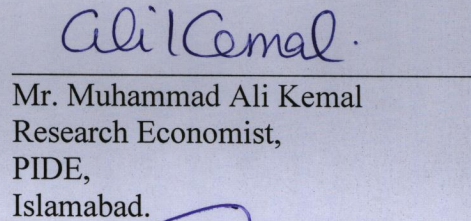 Ali Kemal.
Mr. Muhammad Ali Kemal
Research Economist,
PIDE,
Islamabad.